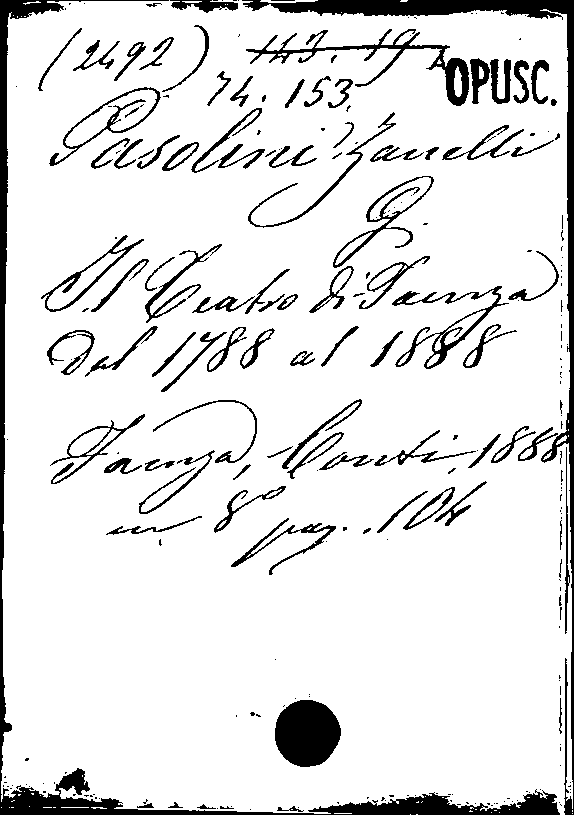 (2492) 143. 19 OPUSC.
74. 153.
Pasolini Zanelli
G.
Il Teatro di Faenza
dal 1788 al 1888
Faenza, Conti, 1888
in 8° pag. 104